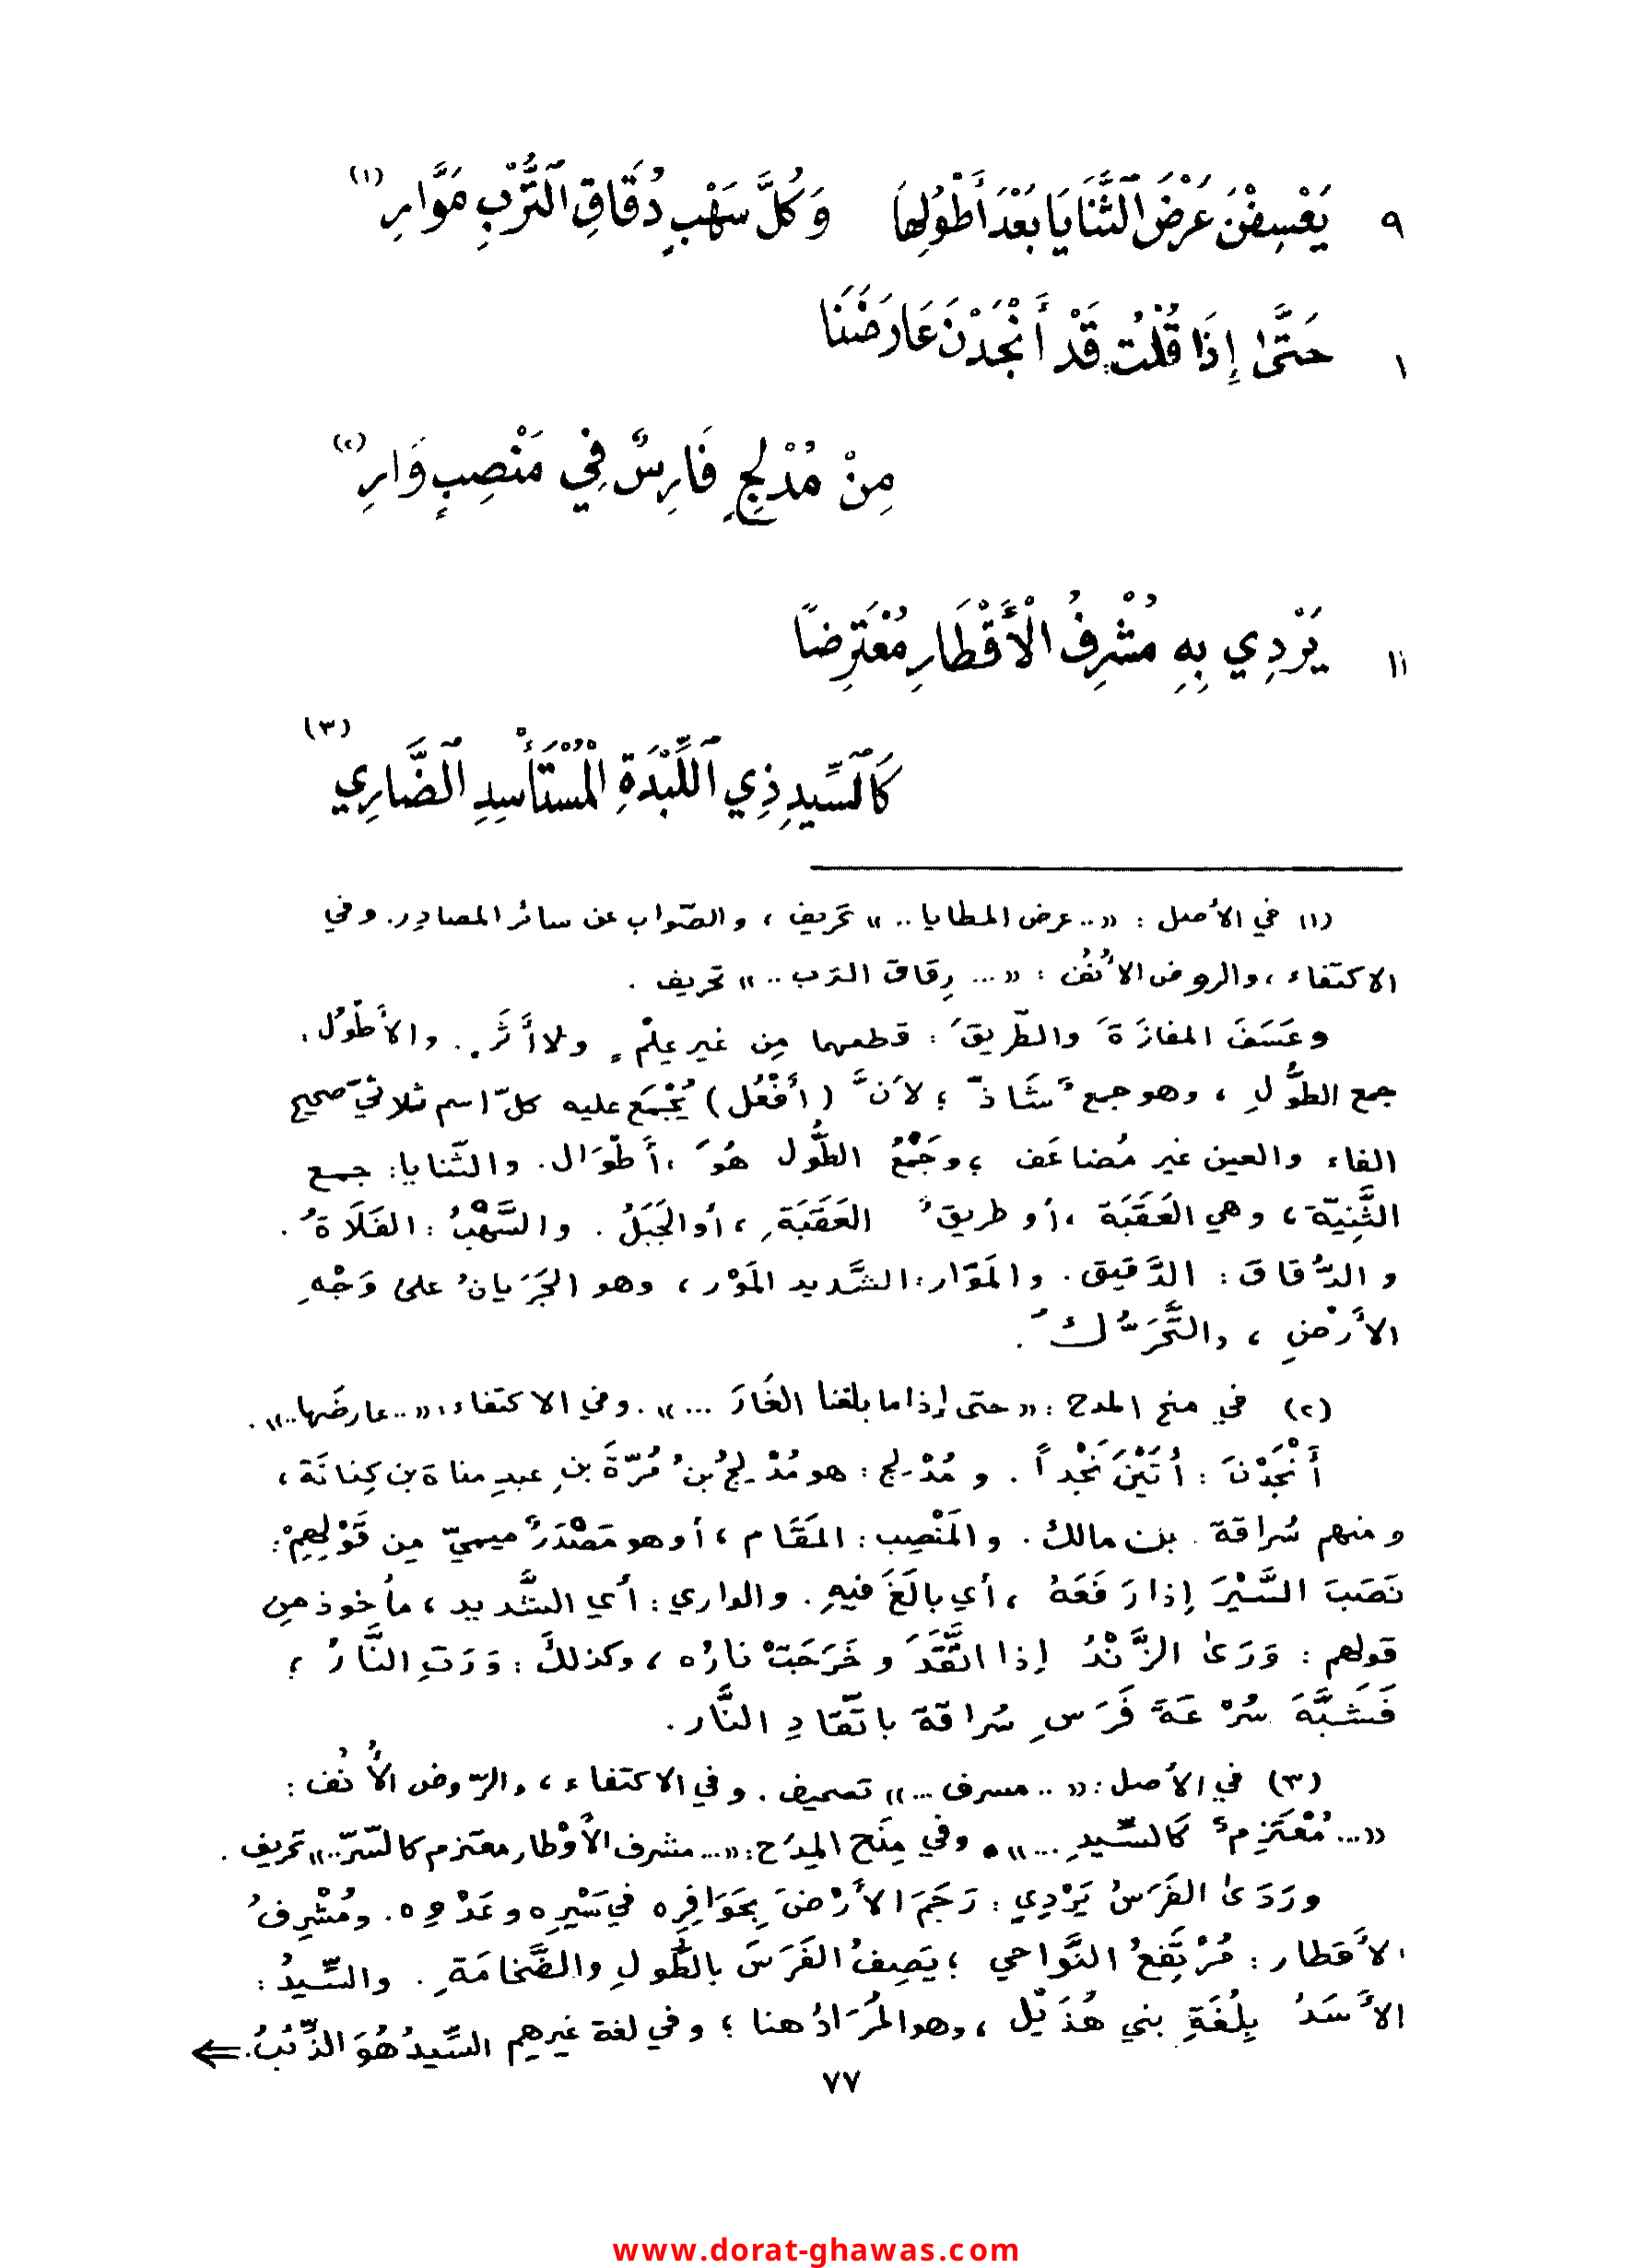 ٩ يَعْسِفْنَ عَرْضَ الثَّنَايَا بَعْدَ أَطْوُلِهَا وَكُلَّ سَهْبٍ دُقَاقِ التُّرْبِ مَوَّارِ (١)
١ حَتَّىٰ إِذَا قُلْتُ قَدْ أَنْجَدْنَ عَارَضَنَا
مِنْ مُدْلِجٍ فَارِسٌ فِي مَنْصِبٍ وَارِ (٢)
١١ يَرْدِي بِهِ مُشْرِفُ الْأَقْطَارِ مُعْتَرِضًا
كَالسِّيدِ ذِي اللِّبْدَةِ الْمُسْتَأْسِدِ الضَّارِي (٣)
(١) في الأصل : «.. عرض المطايا .. » تحريف ، والصّواب عن سائر المصادِر. وفي
الاكتفاء ، والروض الأُنُف : «... رِقاق الترب .. » تحريف .
وعَسَفَ المفازَةَ والطّريقَ : قطعها مِن غير عِلْمٍ ولا أَثَرٍ . والأَطْوُل :
جمع الطُّولِ ، وهو جمعٌ شَاذّ ؛ لأنَّ ( أَفْعُل ) يُجْمَع عليه كلّ اسم ثلاثيّ صحيح
الفاء والعين غير مُضاعَف ، وجَمْعُ الطُّول هُوَ : أَطْوَال. والثّنايا : جمع
الثَّنِيّة ، وهي العَقَبَة ، أو طريقُ العَقَبَةِ ، أو الجَبَلُ . والسَّهْبُ : الفَلَاةُ .
والدُّقاق : الدَّقيق. والمَوّار : الشَّديد المَوْر ، وهو الجَرَيانُ على وَجْهِ
الأرْضِ ، والتَّحَرُّكُ .
(٢) في منح المدح : « حتى إذا ما بلغنا الغَارَ ... » . وفي الاكتفاء : «.. عارضَها.. » .
أَنْجَدْنَ : أَتَيْنَ نَجْداً . و مُدْلِج : هو مُدْلِجُ بنُ مُرّةَ بنِ عبدِ مناة بن كِنانَة ،
ومنهم سُراقة بن مالك . والمَنْصِب : المَقَام ، أو هو مَصْدَرٌ ميميّ مِن قَوْلِهِمْ :
نَصَبَ السَّيْرَ إذا رَفَعَهُ ، أي بالَغَ فيهِ . والواري : أي الشَّديد ، مأخوذ مِن
قولهم : وَرَىٰ الزَّنْدُ إذا اتَّقَدَ و خَرَجَتْ نارُه ، وكذلكَ : وَرَتِ النَّارُ ؛
فَشَبَّهَ سُرْعَةَ فَرَسِ سُراقة باتّقادِ النَّار .
(٣) في الأصل : « .. مسرف ... » تصحيف . وفي الاكتفاء ، والرّوض الأُنُف :
«... مُعْتَزِمٌ كَالسِّيدِ ... » . وفي مِنَح المِدَح : «... مشرف الأَوْطار معتزم كالسّرّ.. » تحريف .
ورَدَىٰ الفَرَسُ يَرْدِي : رَجَمَ الأَرْضَ بِحَوَافِرِه في سَيْرِه وعَدْوِه . ومُشْرِفُ
الأَقطار : مُرْتَفِعُ النَّواحي ؛ يَصِفُ الفَرَسَ بالطُّولِ والضَّخامَةِ . والسِّيدُ :
الأَسَدُ بِلُغَةِ بني هُذَيْل ، وهو المُرَادُ هنا ؛ وفي لغة غيرهم السِّيدُ هُوَ الذِّئْبُ .⇐
٧٧
www.dorat-ghawas.com